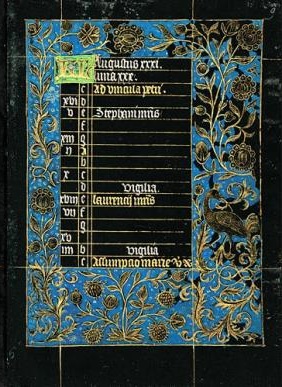 KL Augustus xxxi.
luna xxx.
c Ad vincula petri
xvi d
v e Stephani mris
f
xiii g
ii b
c
x d
e vigilia
xviii f laurencij mris
vii g
xv
iiii b vigilia
c Assumpcio marie v x